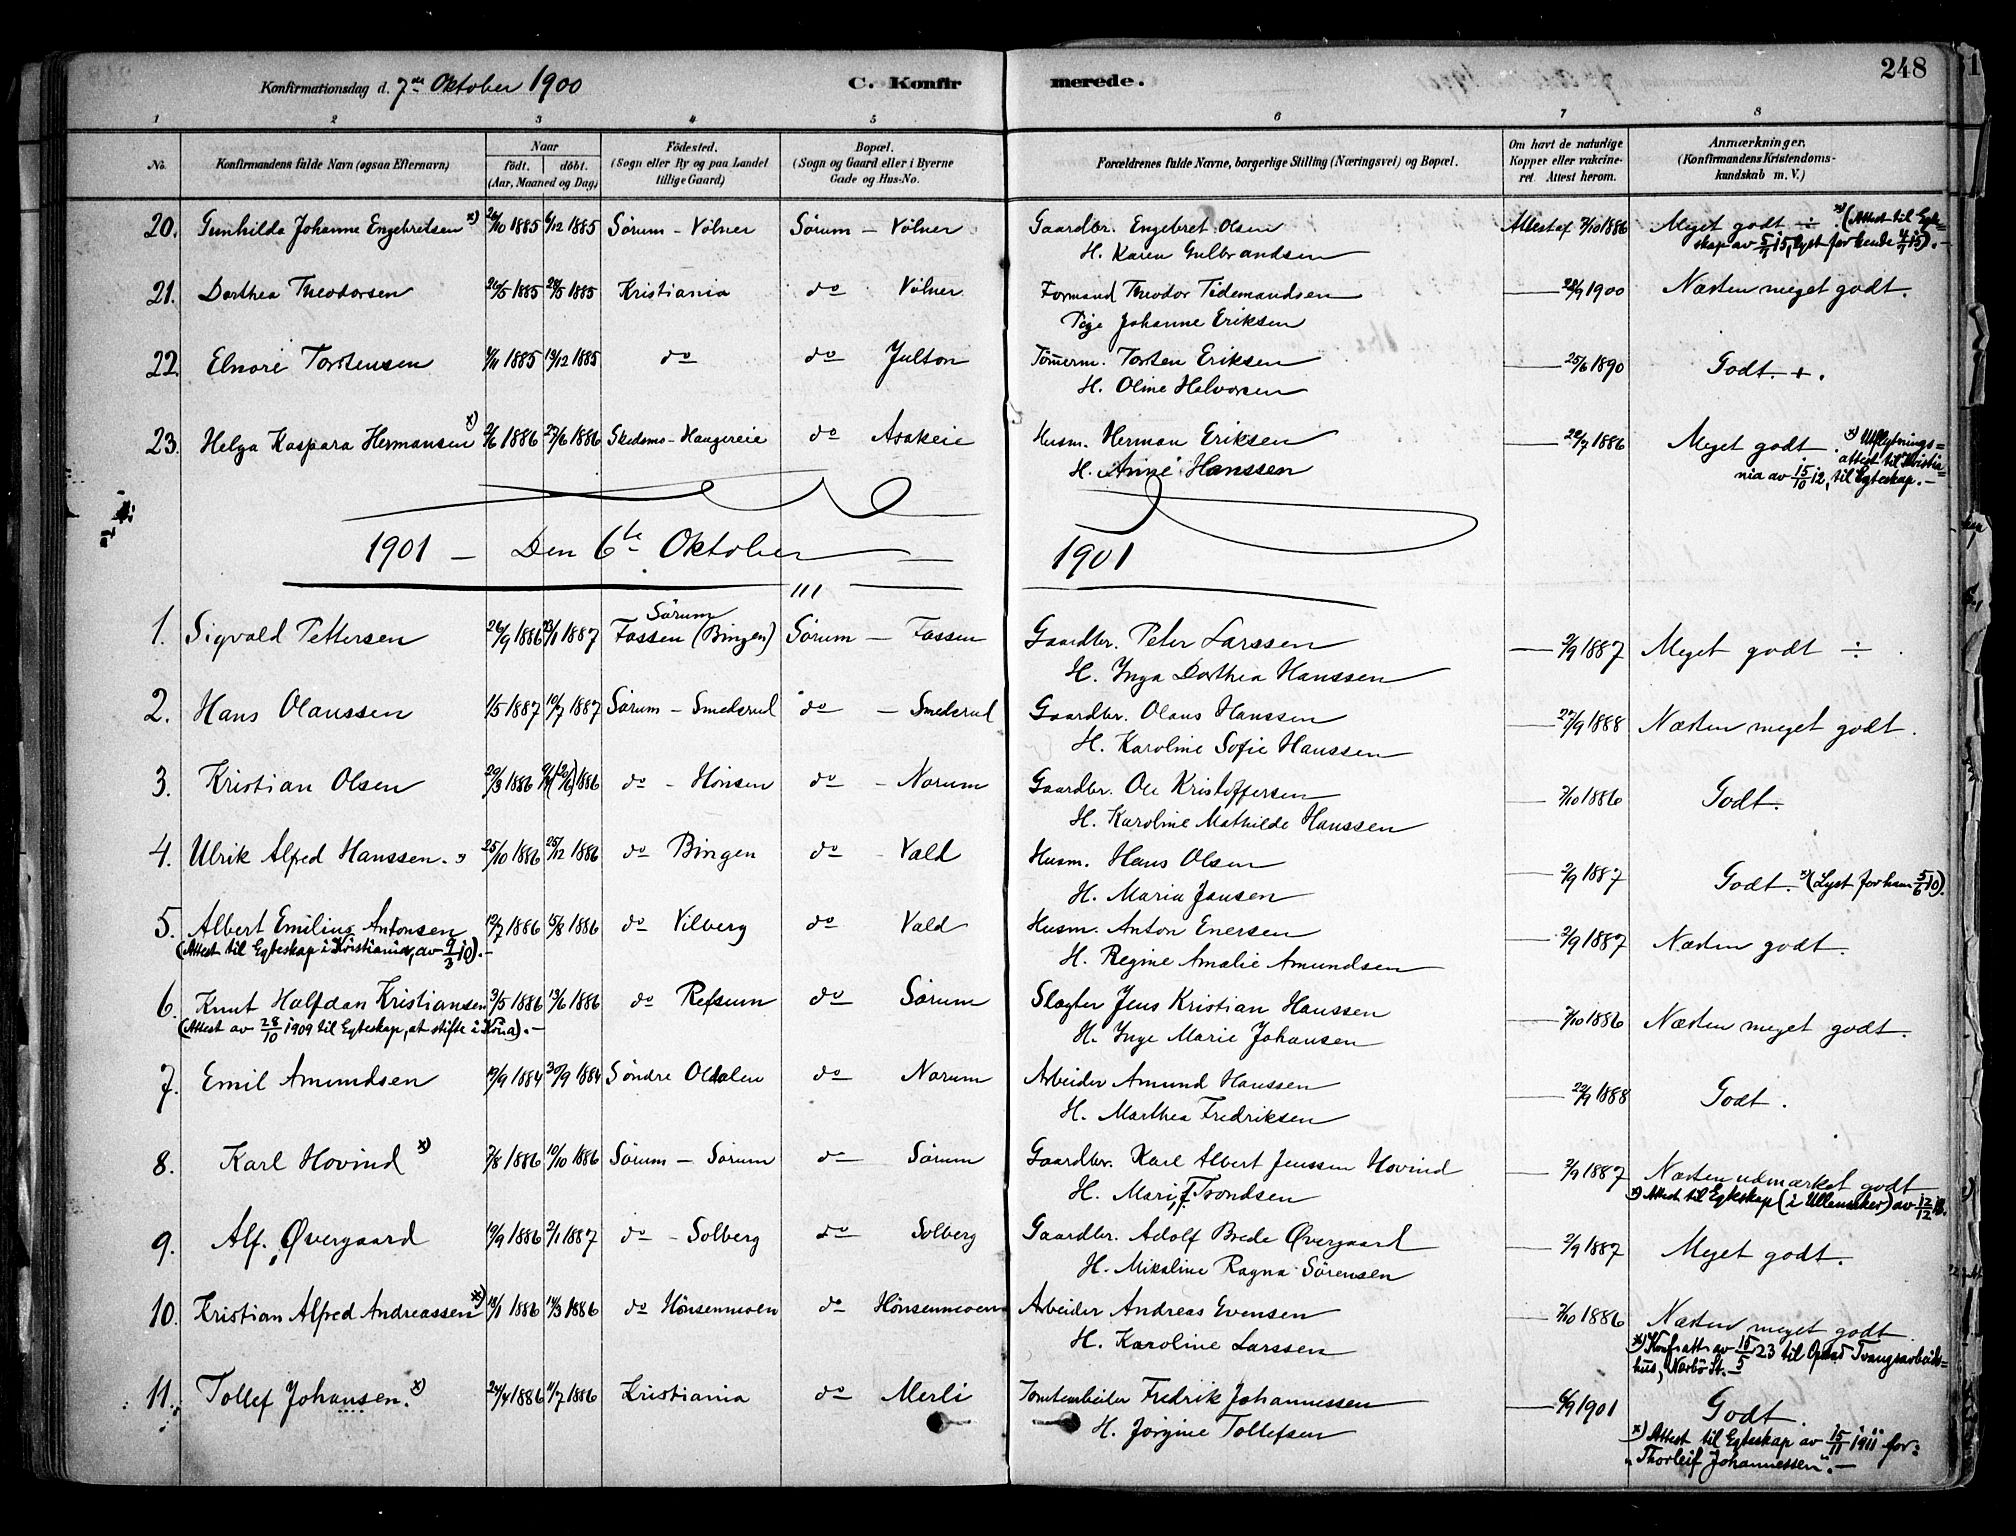 248
Konfirmationsdag d. 7de Oktober 1900 C. Konfirmerede.
1 2 3 4 5 6 7 8
No. Konfirmandens fulde Navn (ogsaa Efternavn) Naar født. døbt. (Aar, Maaned og Dag) Fødested. (Sogn eller By og paa Landet tillige Gaard) Bopæl. (Sogn og Gaard eller i Byerne Gade og Hus-No. Forældrenes fulde Navne, borgerlige Stilling (Næringsvei) og Bopæl. Om havt de naturlige Kopper eller vakcineret. Attest herom. Anmærkninger, (Konfirmandens Kristendomskundskab m. V.)
20. Gunhilda Johanne Engebretsen x) 26/10 1885 6/12 1885 Sørum - Vølner Sørum - Vølner Gaardbr. Engebret Olsen Attest af 7/10 1886 Meget godt ÷ x) (Attest til Egte-
H. Karen Gulbrandsen skap av 5/7 15, lyst for hende 4/7 15). -
21. Dorthea Theodorsen 20/5 1885 28/5 1885 Kristiania do Vølner Formand Theodor Tidemandsen — 28/9 1900 Næsten meget godt.
Pige Johanne Eriksen
22. Elnore Torstensen 9/11 1885 19/12 1885 do do Julton Tømerm. Torsten Eriksen — 25/6 1890 Godt. +.
H. Oline Halvorsen
23. Helga Kaspara Hermansen x) 2/6 1886 27/6 1886 Skedsmo - Haugereie do Asakeie Husm. Herman Eriksen — 22/7 1886 Meget godt. x) Utflytnings=
H. Anne Hanssen attest til Kristia=
nia av 15/10 12, til Egteskap. -
1901 - Den 6te Oktober 1901
1. Sigvald Pettersen 26/9 1886 23/1 1887 Sørum Fossen (Bingen) Sørum - Fossen Gaardbr. Peter Larssen — 2/9 1887 Meget godt ÷
H. Inga Dorthea Hanssen
2. Hans Olaussen 1/5 1887 10/7 1887 Sørum - Smedsrud do - Smedsrud Gaardbr. Olaus Hanssen — 27/9 1888 Næsten meget godt.
H. Karoline Sofie Hanssen
3. Kristian Olsen 29/3 1886 1886 do - Hønsen do - Norum Gaardbr. Ole Kristoffersen — 7/10 1886 Godt.
H. Karoline Mathilde Hanssen
4. Ulrik Alfred Hanssen. 25/10 1886 25/12 1886 do Bingen do - Vald Husm. Hans Olsen — 2/9 1887 Godt. x) (Lyst for ham 5/6 10).
H. Maria Jansen
5. Albert Emilius Antonsen 12/7 1886 15/8 1886 do Vilberg do Vald Husm. Anton Enersen — 2/9 1887 Næsten godt.
(Attest til Egteskap i Kristiania, av 9/3 10). - H. Regine Amalie Amundsen
6. Knut Halfdan Kristiansen 3/5 1886 13/6 1886 do Refsum do Sørum Slagter Jens Kristian Hanssen — 7/10 1886 Næsten meget godt.
(Attest av 28/10 1909 til Egteskap, at stifte i Kr.a). - H. Inge Marie Johansen
7. Emil Amundsen 19/9 1884 30/9 1884 Søndre Oldalen do Norum Arbeider Amund Hanssen — 22/9 1888 Godt.
H. Marthea Fredriksen
8. Karl Hovind x) 7/8 1886 10/10 1886 Sørum - Sørum do Sørum Gaardbr. Karl Albert Jenssen Hovind — 2/9 1887 Næsten udmærket godt
H. Mari, f. Trondsen x) Attest til Egteskap (i Ullensaker) av 12/12 18.
9. Alf. Øvergaard 19/9 1886 2/1 1887 do - Solberg do Solberg Gaardbr. Adolf Brede Øvergaard — 2/9 1887 Meget godt.
H. Mikaline Ragna Sørensen
10. Kristian Alfred Andreassen x) 18/1 1886 14/3 1886 do Hønsenmoen do Hønsenmoen Arbeider Andreas Evensen — 7/10 1886 Næsten meget godt.
H. Karoline Larssen x) Konf.att. av 15/5 23 til Opstad Tvangsarbeids-
hus, Nærbø St. -
11. Tollef Johansen. x) 24/4 1886 11/7 1886 Kristiania do Merli Tomtearbeider Fredrik Johannessen — 6/9 1901 Godt.
H. Jørgine Tollefsen x) Attest til Egteskap av 15/11 1911 for:
„Thorleif Johannessen“. -